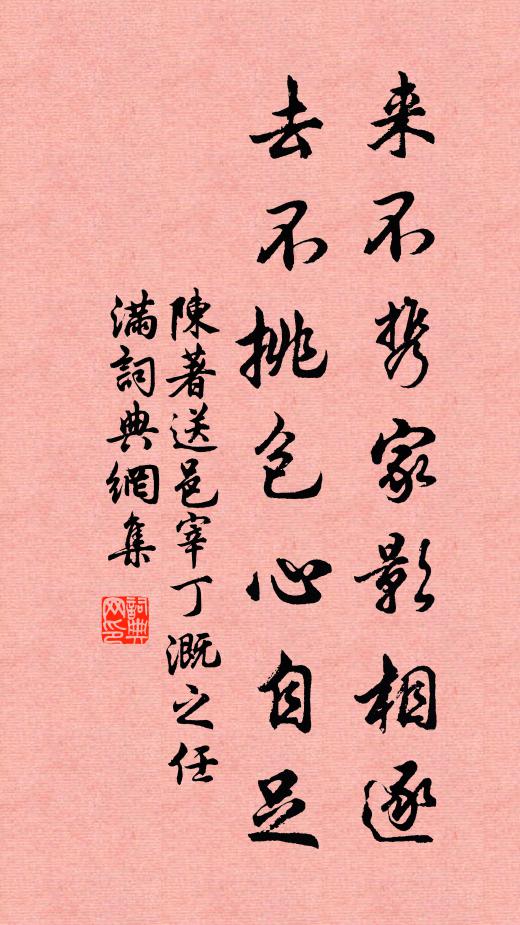 来不携家影相逐
去不挑包心自足
陳著送邑宰丁溉之任
滿詞典網集
詞典网印